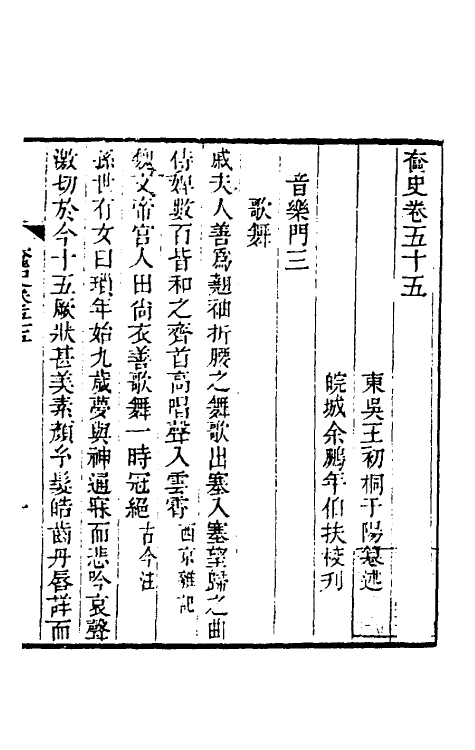 奩史卷五十五
東吳王初桐于陽纂述
皖城余鵬年伯扶校刊
音樂門三
歌舞
戚夫人善爲翹袖折腰之舞歌出塞入塞望歸之曲
侍婢數百皆和之齊首高唱聲入雲霄西京雜記
魏文帝宮人田尙衣善歌舞一時冠絕古今注
孫世有女曰瑣年始九歲夢與神通寐而悲吟哀聲
激切於今十五厥狀甚美素顏玄髮皓齒丹唇詳而